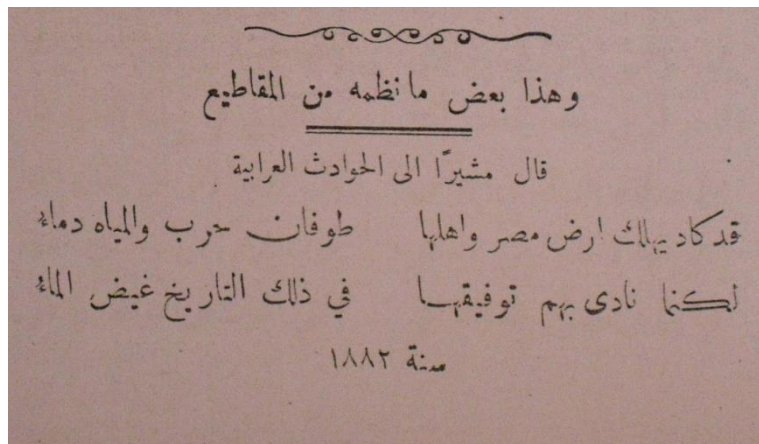 وهذا بعض ما نظمه من المقاطيع
قال مشيرًا الى الحوادث العرابية
قد كاد يهلك ارض مصر واهلها طوفان حرب والمياه دماء
لكنما نادى بهم توفيقها في ذلك التاريخ غيض الماء
سنة ١٨٨٢